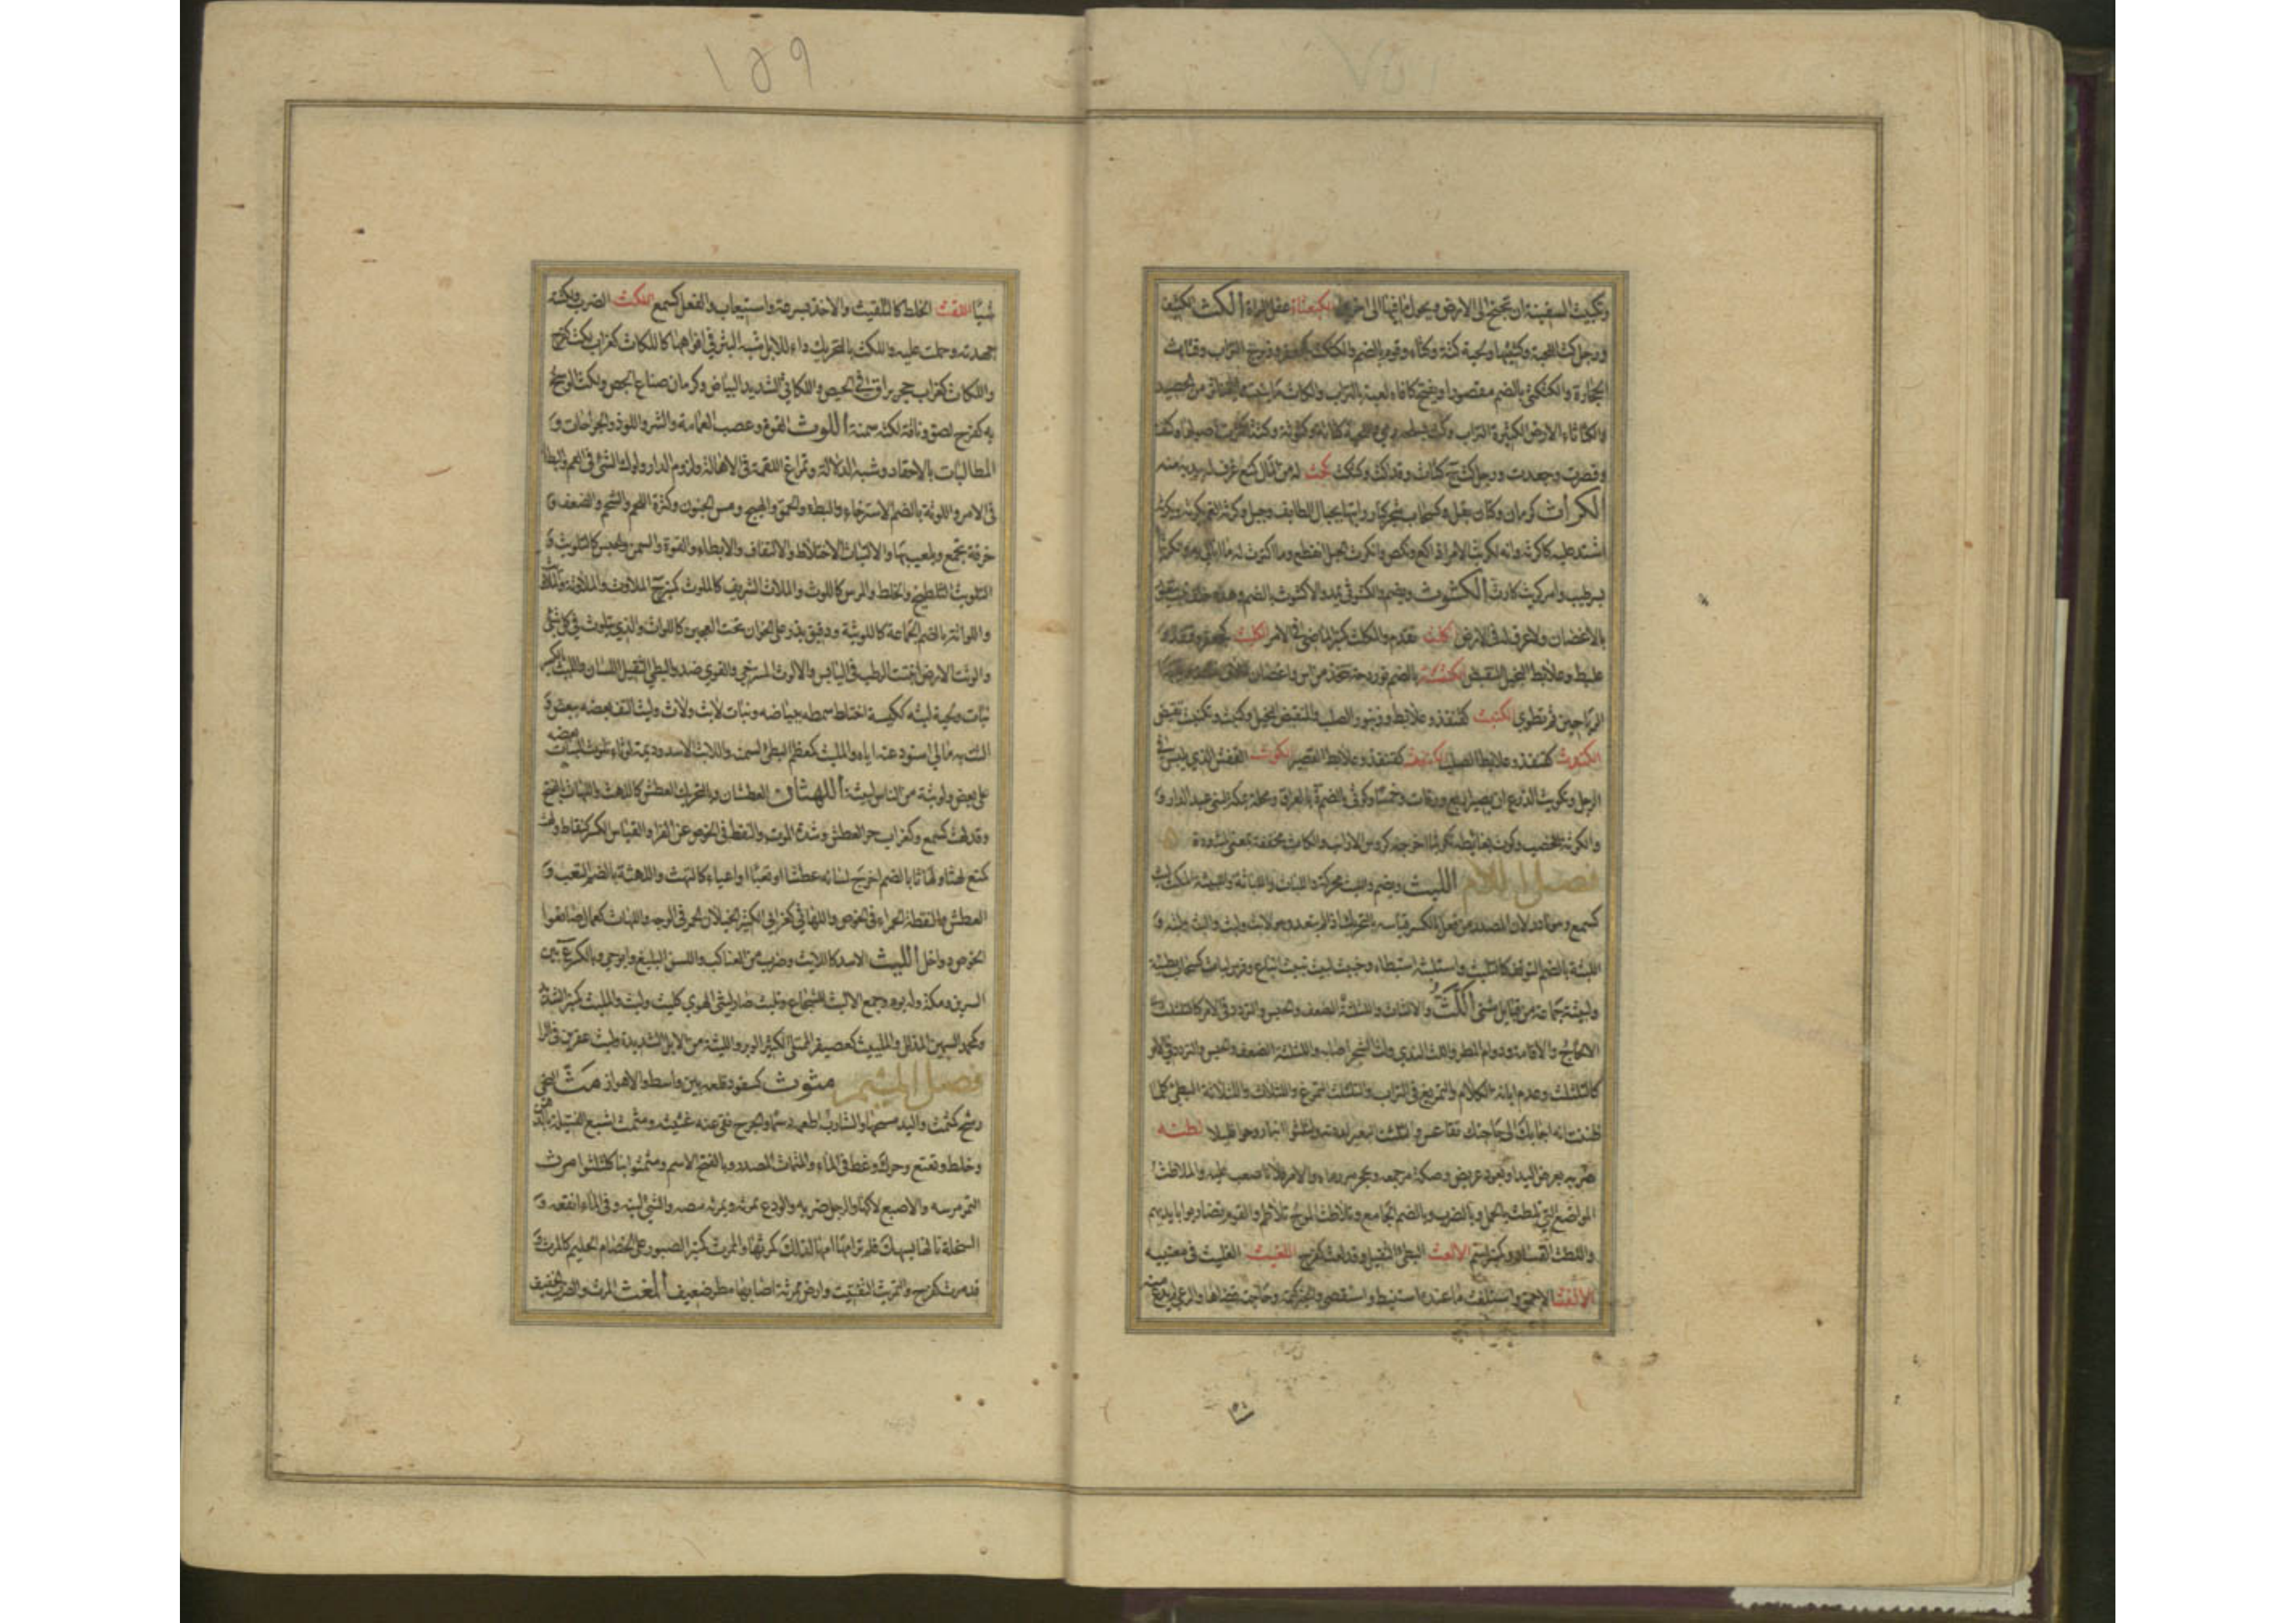 وتكبيث السفينة ان تجنح الى الارض ويحول ما فيها الى اخرى الكبعثاة عفل المراة الكث الكثيف
ورجل كث اللحية وكثيثها ولحية كثة وكثاء وقوم بالضم والكثكث كجعفر وزبرج التراب وفتات
الحجارة والكثكثى بالضم مقصورا ويفتح كافاه لعبة بالتراب والكاث ما ينبت مما يتناثر من الحصيد
والكثاثاء الارض الكثيرة التراب وكث
وقصرت وجعدت ورجل كث ج كثاث وقد اكث وكثكث كحث له من المال كمنع غرف له بيديه منه
الكراث كرمان وكتان بقل وكسحاب شجر كبار رايتها بجبال الطايف وجبل وكرثه الغم يكرثه ويكرثه
اشتد عليه كاكرثه وانه لكريث الامر اذا كع ونكص وانكرث الحبل انقطع وما اكترث له ما ابالي به
بر طيب وامر كريث كارث الكشوث ويضم والكشوثى ويمد والاكشوث بالضم وهذه خلف نبت يتعلق
بالاغصان ولا عرق له في الارض كلث تقدم والمكلث كمنبر الماضي في الامر الكلبث كجعفر وقنفذ
علبط وعلابط البخيل المنقبض الكنثة بالضم نوردجة تتخذ من اس واغصان
الرياحين ثم تطوى الكنبث كقنفذ وعلابط وزنبور الصلب والمنقبض البخيل وكنبث وتكنبث تقبض
الكندث كقنفذ وعلابط الصلب الكنفث كقنفذ وعلابط القصير الكوث القفش الذي يلبس في
الرجل وتكويث الزرع ان يصير اربع ورقات وخمسا وكوثى بالضم ة بالعراق ومحلة بمكة لبنى عبد الدار و
والكوثة الخصب وكوث بغايطه تكويثا اخرجه كروس الارانب والكاث مخففة بمعنى المشددة
فصل اللام اللبث ويضم واللبث محركة واللباث واللباثة واللبيثة المكث لبث
كسمع وهو نادر لان المصدر من فعل بالكسر قياسه بالتحريك اذا لم يتعد وهو لابث ولبث والبثه ولبثه و
اللبثة بالضم التوقف كالتلبث واستلبثه استبطاه وخبيث لبيث نبيث اتباع وقوس لباث كسحاب بطيئة
ولبيثة جماعة من قبايل شتى اللث والالثاث واللثلثة الضعف والحبس والتردد في الامر كالتلثلث
الالحاح والاقامة ودوام المطر واللث الندى ولث الشجر اصابه واللثلثة الضعف والحبس والتردد في الامر
كالتلثلث وعدم ابانة الكلام والتمريغ في التراب والتلثلث التمرغ واللثلاث واللثلاثة البطى كلما
ظننت انه اجابك الى حاجتك تقاعس ولثلث البعير لدهته ولثلثوا بنا روحوا قليلا لطثه
ضربه بعرض اليد او بعود عريض وصكه ورجمعه وبحجر رماه والامر فلانا صعب عليه والملاطث
المواضع التي تلطث بالحمل وبالضرب وبالضم الجامع وتلاطث الموج تلاطم والقوم تضاربوا بايديهم
واللطث الفساد وكمنبر اسم الالعث البطى الثقيل وقد لعث كفرح اللغيث الغليث في معنييه
الالفث الاحمق واستلفث ما عنده استنبط واستقصى والخبر كتمه وحاجته قضاها والرعى
شيا اللقث الخلط كالتلقيث والاخذ بسرعة واستيعاب والفعل كسمع اللكث الضرب ولكثه
جهدته وحملت عليه واللكث بالتحريك داء للابل شبه البثر في افواهها كاللكاث كغراب لكث كفرح
واللكاث كغراب حجر براق في الجص واللكاثي الشديد البياض وكرمان صناع الجص ولكث الوسخ
به كفرح لصق وناقة لكثة سمنة اللوث القوة وعصب العمامة والشر واللوذ والجراحات و
المطالبات بالاحقاد وشبه الدلالة وتمراغ اللقمة في الاهالة ولزوم الدار ولوك الشى في الفم والبطا
في الامر واللوثة بالضم الاسترخاء والبطء والحمق والهيج ومس الجنون وكثرة اللحم والشحم والضعف و
خرقة تجمع ويلعب بها والالتياث الاختلاط والالتفاف والابطاء والقوة والسمن والحبس كالتلويث و
التلويث التلطيخ والخلط والمرس كاللوث والملاث الشريف كالملوث كمنبر ج الملاوث والملاوثة والملاويث
واللواثة بالضم الجماعة كاللويثة ودقيق يذر على الخوان تحت العجين كاللواث والذي يتلوث في كل شى
والوثت الارض انبتت الرطب في اليابس والالوث المسترخي والقوى ضد والبطى الثقيل اللسان والليث بالكسر
نبات ولحية ليثة ككيسة اختلط سمطه ببياضه ونبات لايث ولاث وليث التف بعضه ببعض و
التث به مالي استودعته اياه والمليث كمعظم البطى لسمنه واللايث الاسد وديمة لوثاء تلوث النبات بعضه
على بعض ولويثة من الناس لبيثة اللهثان العطشان وبالتحريك العطش كاللهث واللهاث بالفتح
وقد لهث كسمع وكغراب حر العطش وشدة الموت والنقط في الخوص عن الفراء والقياس الكسر كنقاط ولهث
كمنع لهثا ولهاثا بالضم اخرج لسانه عطشا او تعبا او اعياء كالتهث واللهثة بالضم التعب و
العطش والنقطة الحمراء في الخوص واللهاثي كغرابي الكثير الخيلان الحمر في الوجه واللهاث كعمال صانعوا
الخوص دواخل الليث الاسد كاللايث وضرب من العناكب واللسن البليغ وابو حي وبالكسر ع بين
السرين ومكة وله يوم وجمع الاليث للشجاع وتليث صار ليثى الهوى كليث وليث والمليث كمنبر الشديد
وكمحمد السمين المذلل والمليث كعصيفر الممتلى الكثير الوبر والليثة من الابل الشديدة وليث عفرين في الراء
فصل الميم متوث كسفود قلعة بين واسط والاهواز مث النحى
رشح كتمثث واليد مسحها والشارب اطعمه دسما والجرح نقى عنه غثيثه ومثمث اشبع الفتيلة بالدهن
وخلط وتعتع وحرك وغط في الماء والمثماث المصدر وبالفتح الاسم ومثمثوا بنا كلثلثوا مرث
التمر مرسه والاصبع لاكها والرجل ضربه والودع يمرثه ويمرثه مصه والشى لينه وفي الماء انقعه و
السخلة نالها بسهك فلم ترامها امها لذلك كمرثها والممرث كمنبر الصبور على الخصام الحليم كالمرث و
قد مرث كفرح والتمريث التفتيت وارض ممرثة اصابها مطر ضعيف المغث المرث والضرب الخفيف